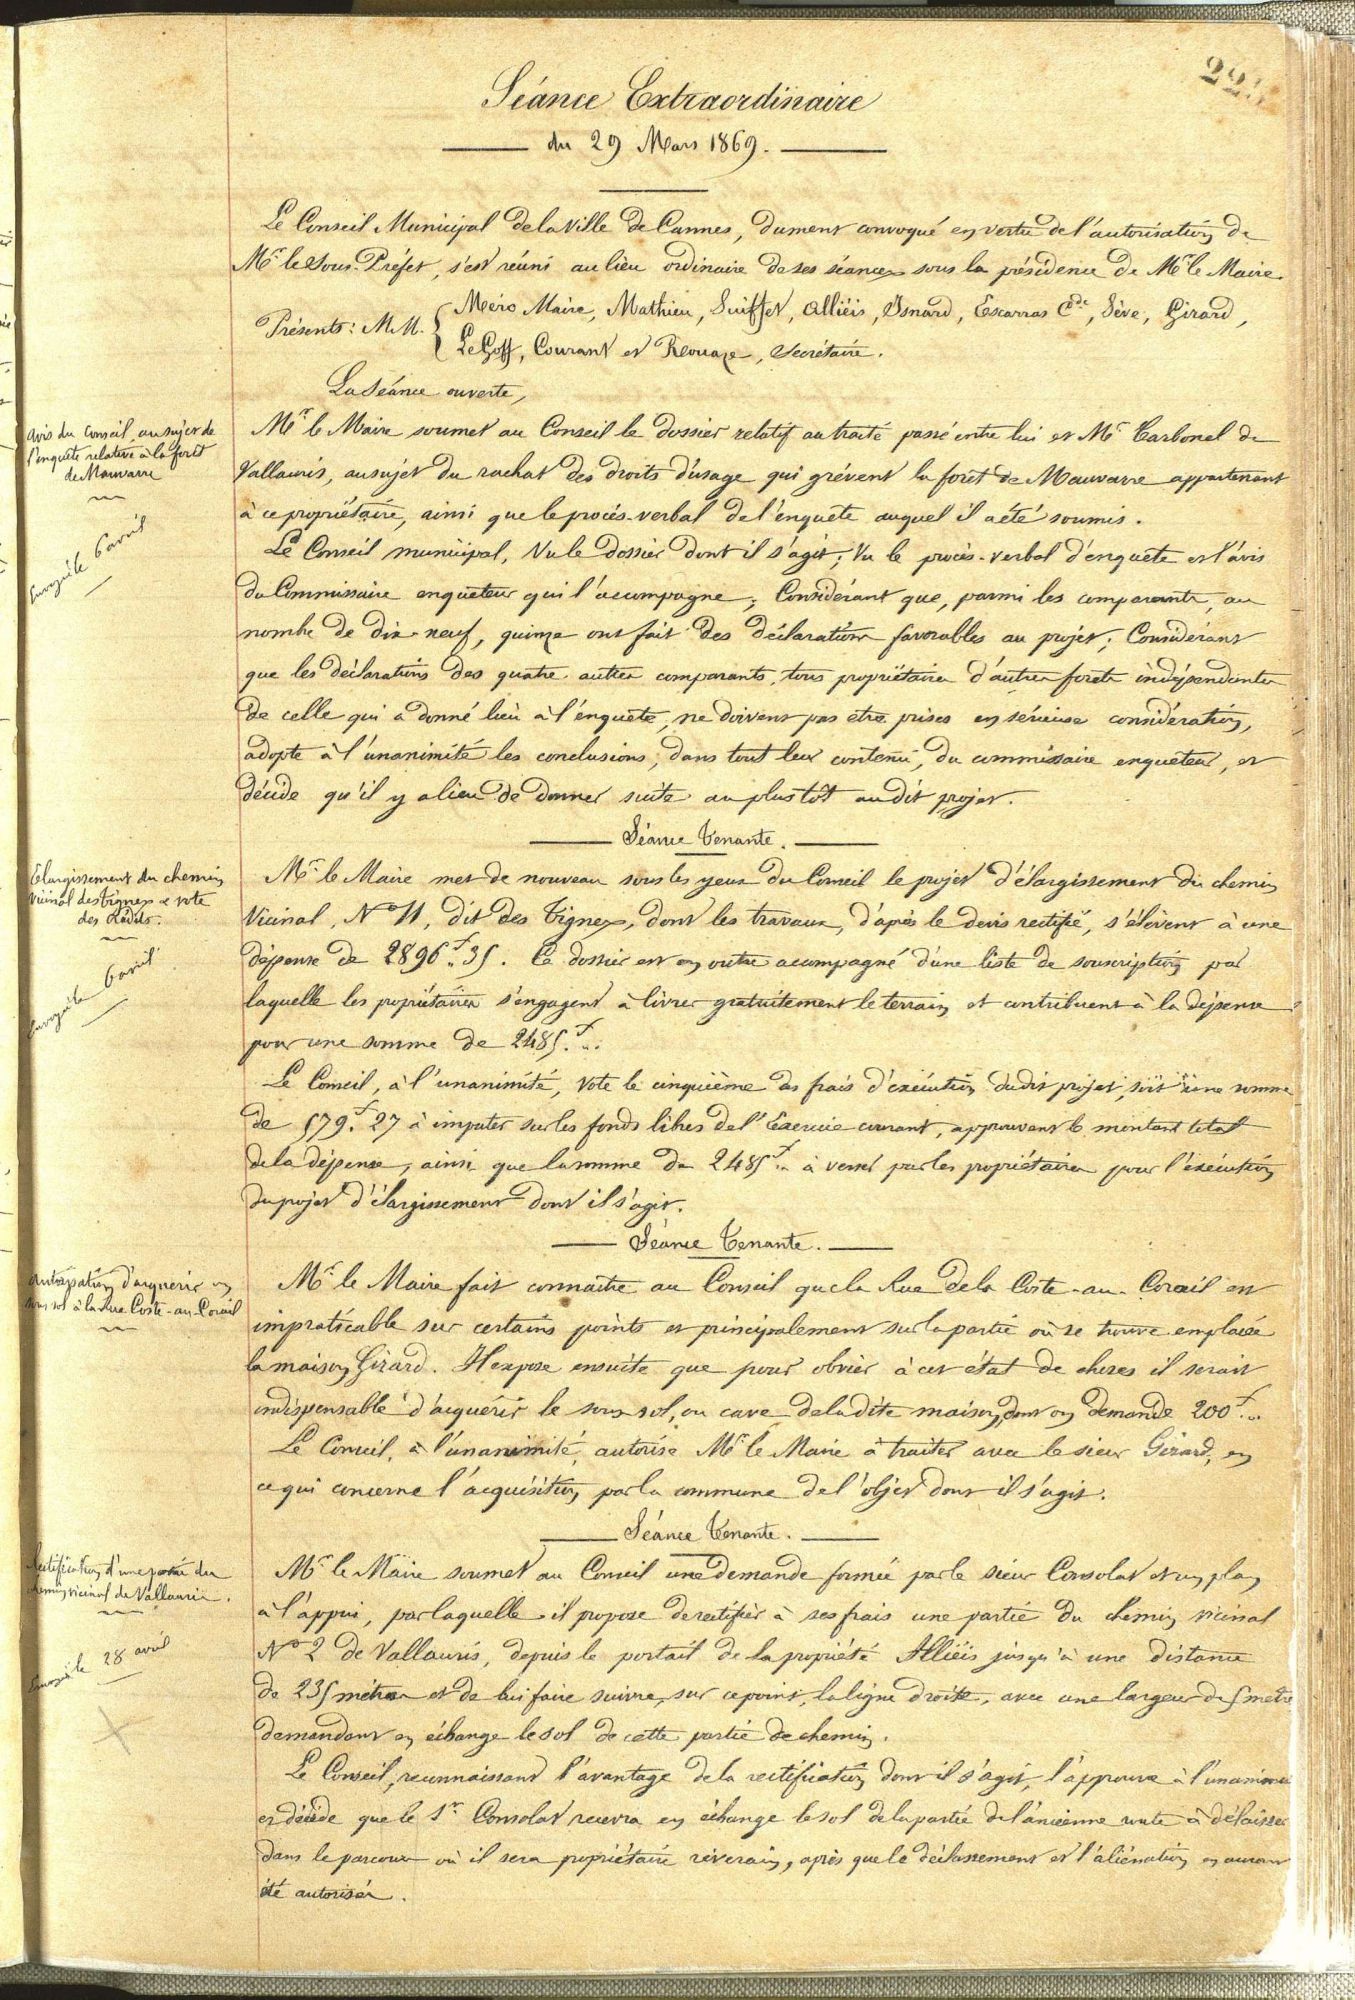 Séance Extraordinaire
du 29 Mars 1869.
Le Conseil Municipal de la Ville de Cannes, dument convoqué en vertu de l'autorisation de
Mr. le Sous-Préfet, s'est réuni au lieu ordinaire de ses séances sous la présidence de Mr. le Maire.
Présents : M.M. Méro Maire, Mathieu, Suiffet, Alliéis, Isnard, Escarras Cde, Sève, Girard,
Le Goff, Courant et Rlouaze, Secrétaire.
La Séance ouverte,
avis du Conseil, au sujet de
l'enquête relative à la forêt
de Mauvarre
Envoyé le 6 avril
Mr. le Maire soumet au Conseil le dossier relatif au traité passé entre lui et Mr. Carbonel de
Vallauris, au sujet du rachat des droits d'usage qui grévent la forêt de Mauvarre appartenant
à ce propriétaire, ainsi que le procès-verbal de l'enquête auquel il a été soumis.
Le Conseil municipal, Vu le dossier dont il s'agit ; Vu le procès-verbal d'enquête et l'avis
du Commissaire enquêteur qui l'accompagne ; Considérant que, parmi les comparants, au
nombre de dix-neuf, quinze ont fait des déclarations favorables au projet ; Considérant
que les déclarations des quatre autres comparants, tous propriétaires d'autres forêts indépendantes
de celle qui a donné lieu à l'enquête, ne doivent pas être prises en sérieuse considération,
adopte à l'unanimité les conclusions, dans tout leur contenu, du commissaire enquêteur, et
décide qu'il y a lieu de donner suite au plus tôt audit projet.
Séance Tenante.
Elargissement du chemin
vicinal des Tignes & vote
des Crédits.
Envoyé le 6 avril
Mr. le Maire met de nouveau sous les yeux du Conseil le projet d'élargissement du chemin
Vicinal, No 11, dit des Tignes, dont les travaux, d'après le devis rectifié, s'élèvent à une
dépense de 2896f.35. Ce dossier est en outre accompagné d'une liste de souscription par
laquelle les propriétaires s'engagent à livrer gratuitement le terrain et contribuent à la dépense
pour une somme de 2485.f..
Le Conseil, à l'unanimité, vote le cinquième des frais d'exécution dudit projet, soit une somme
de 579.f27 à imputer sur les fonds libres de l'Exercice courant, approuvant le montant total
de la dépense, ainsi que la somme de 2485f.. à verser par les propriétaires pour l'exécution
du projet d'élargissement dont il s'agit.
Séance Tenante.
autorisation d'acquérir un
sous sol à la Rue Coste-au-Corail
Mr. le Maire fait connaître au Conseil que la Rue de la Coste-au-Corail est
impraticable sur certains points et principalement sur la partie où se trouve emplacée
la maison Girard. Il expose ensuite que pour obvier à cet état de choses il serait
indispensable d'acquérir le sous-sol, ou cave de la dite maison, dont on demande 200f..
Le Conseil, à l'unanimité, autorise Mr. le Maire à traiter avec le sieur Girard, en
ce qui concerne l'acquisition par la commune de l'objet dont il s'agit.
Séance Tenante.
Rectification d'une partie du
chemin vicinal de Vallauris.
Envoyé le 28 avril
Mr. le Maire soumet au Conseil une demande formée par le sieur Consolat et un plan
à l'appui, par laquelle il propose de rectifier à ses frais une partie du chemin vicinal
No 2 de Vallauris, depuis le portail de la propriété Alliéis jusqu'à une distance
de 235 mètres et de lui faire suivre, sur ce point, la ligne droite, avec une largeur de 5 mètres
demandant en échange le sol de cette partie de chemin.
Le Conseil, reconnaissant l'avantage de la rectification dont il s'agit, l'approuve à l'unanimité
et décide que le Sr. Consolat recevra en échange le sol de la partie de l'ancienne route à délaisser
dans le parcours où il sera propriétaire riverain, après que le déclassement et l'aliénation en auront
été autorisés.